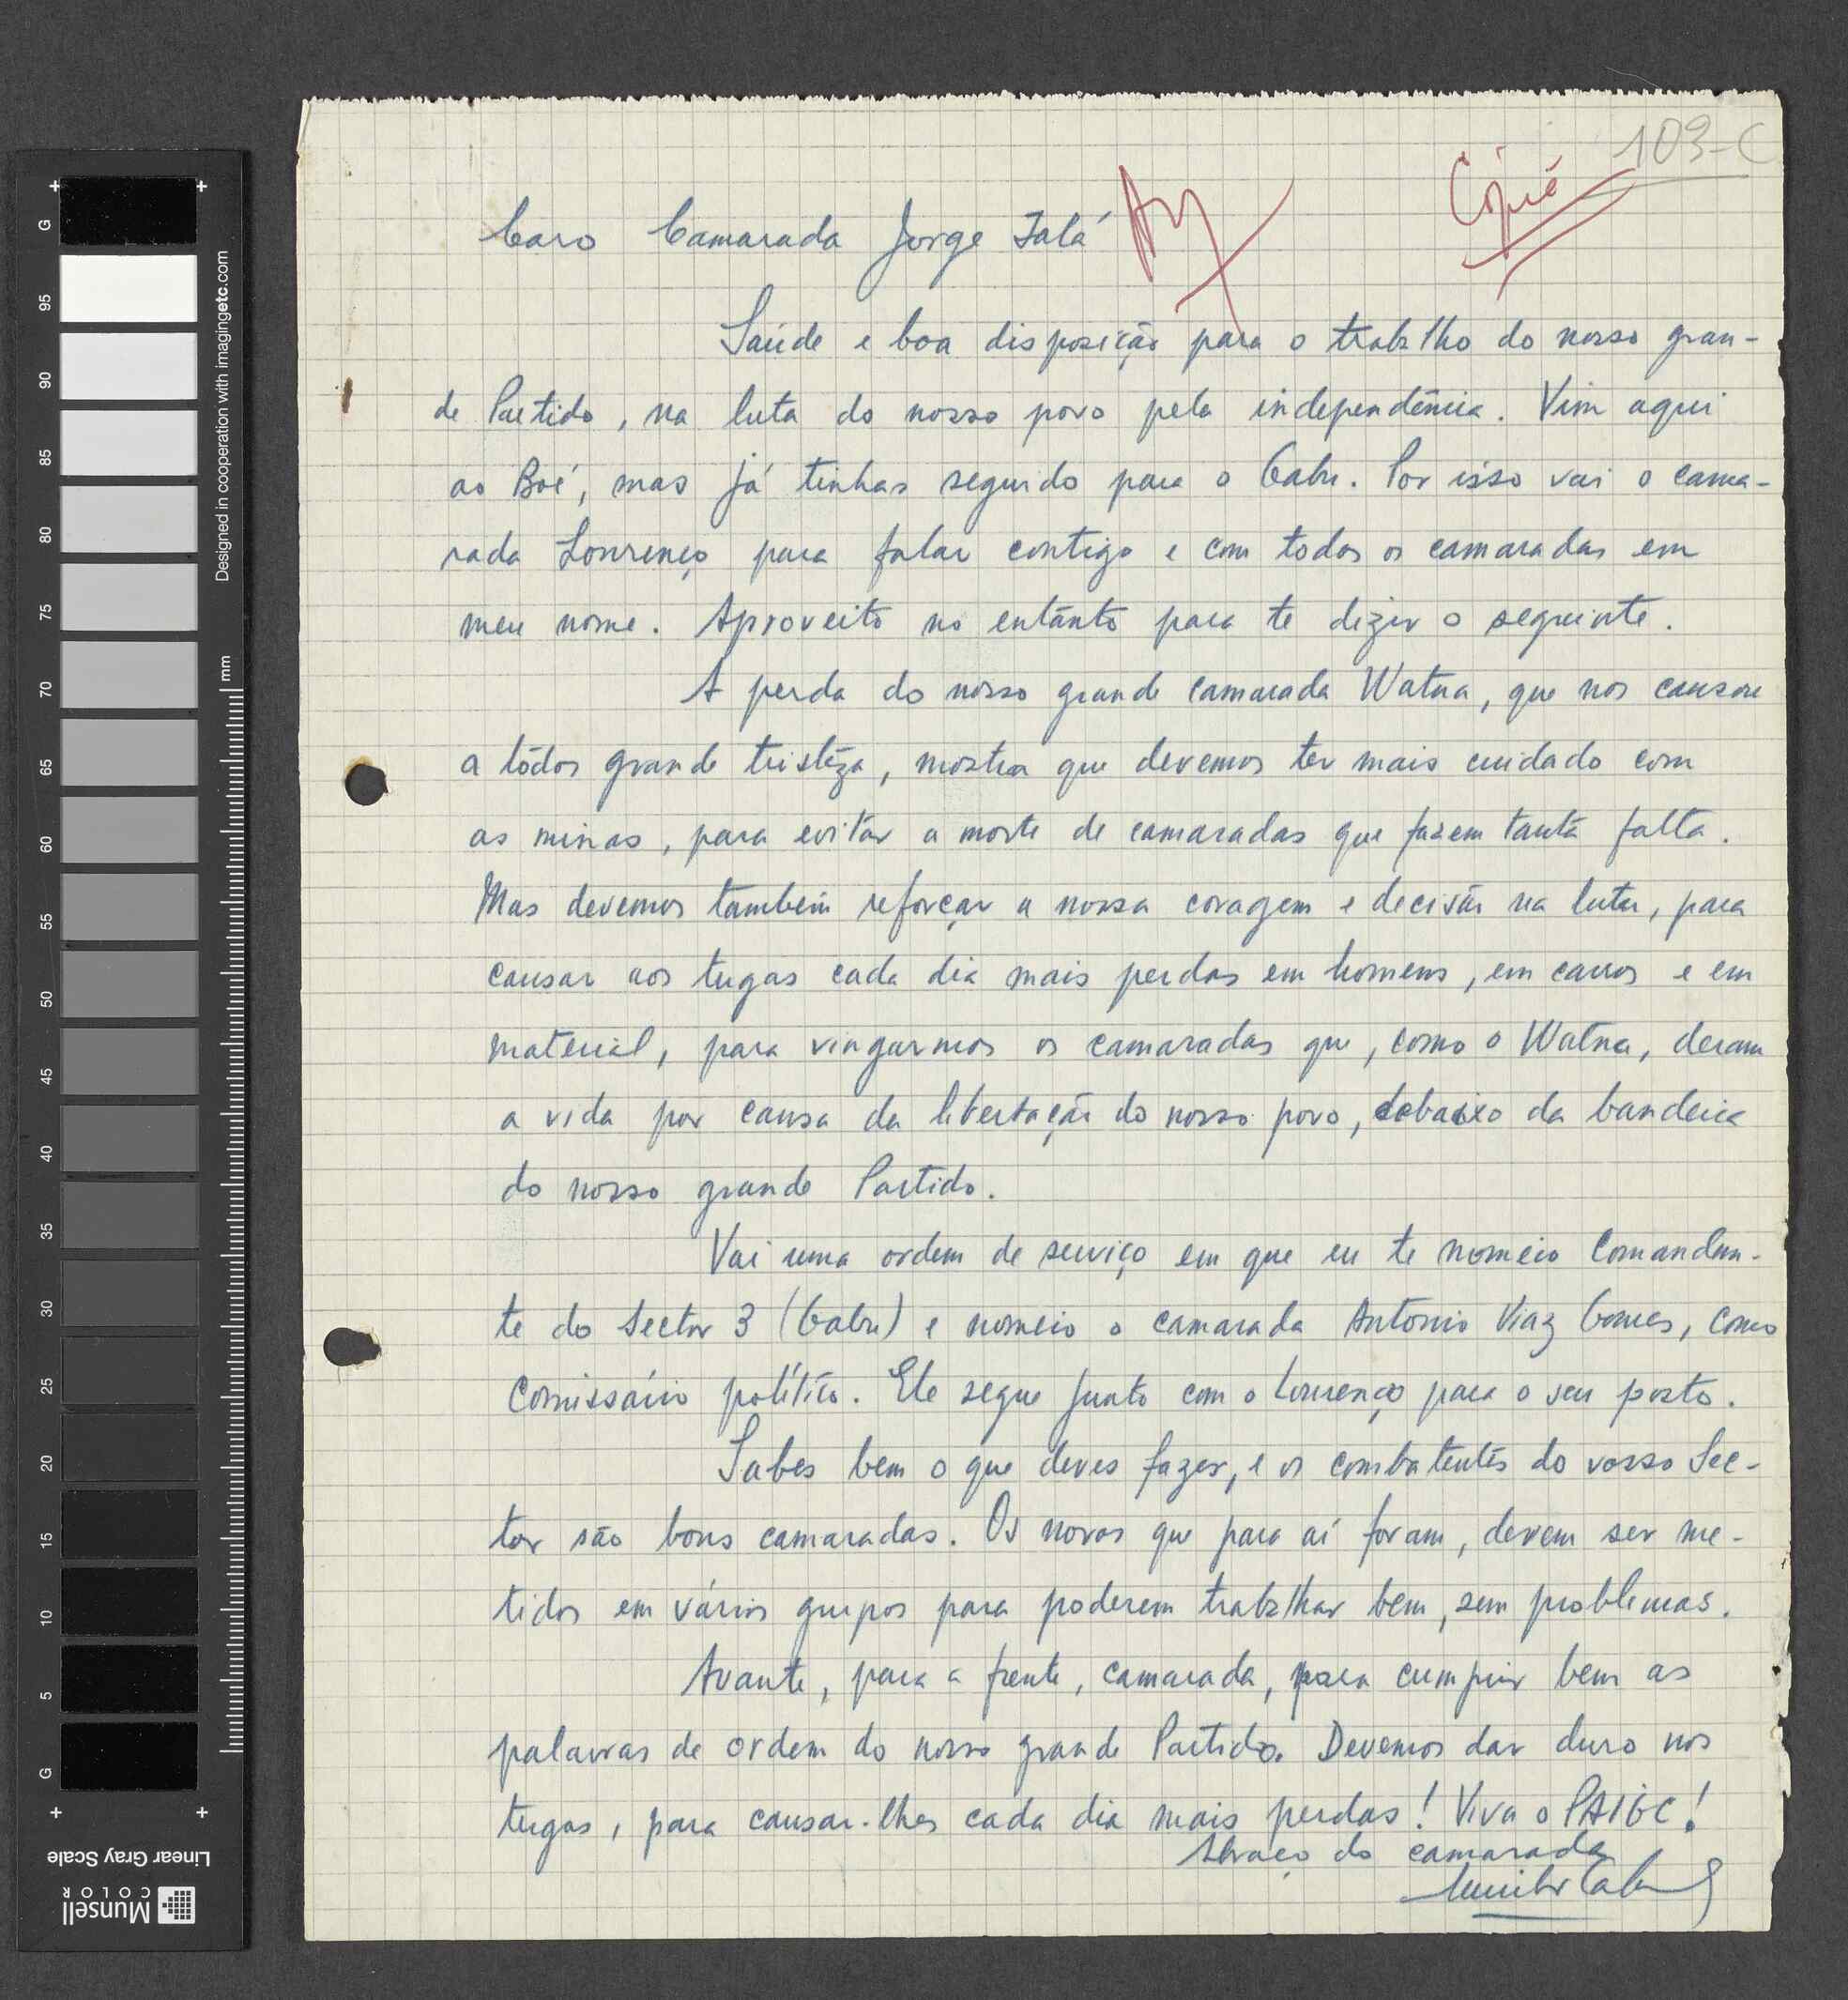 103-C
Cópia
Caro Camarada Jorge Ialá
Saúde e boa disposição para o trabalho do nosso gran-
de Partido, na luta do nosso povo pela independência. Vim aqui
ao Boé, mas já tinhas seguido para o Gabu. Por isso vai o cama-
rada Lourenço para falar contigo e com todos os camaradas em
meu nome. Aproveito no entanto para te dizer o seguinte.
A perda do nosso grande camarada Watna, que nos causou
a tôdos grande tristêza, mostra que devemos ter mais cuidado com
as minas, para evitar a morte de camaradas que fazem tanta falta.
Mas devemos também reforçar a nossa coragem e decisão na luta, para
causar aos tugas cada dia mais perdas em homens, em carros e em
material, para vingarmos os camaradas que, como o Watna, deram
a vida por causa da libertação do nosso povo, debaixo da bandeira
do nosso grande Partido.
Vai uma ordem de serviço em que eu te nomeio Comandan-
te do Sector 3 (Gabu) e nomeio o camarada Antonio Viaz Gomes, como
Comissário político. Ele segue junto com o Lourenço para o seu posto.
Sabes bem o que deves fazer, e os combatentes do vosso Sec-
tor são bons camaradas. Os novos que para aí foram, devem ser me-
tidos em vários grupos para poderem trabalhar bem, sem problemas.
Avante, para a frente, camarada, para cumprir bem as
palavras de ordem do nosso grande Partido. Devemos dar duro nos
tugas, para causar-lhes cada dia mais perdas! Viva o PAIGC!
Abraço do camarada
Amilcar Cabral
G 95 90 85 80 75 70 65 60 55 50 45 40 35 30 25 20 15 10 5 G
mm
Designed in cooperation with imagingetc.com
Linear Gray Scale
Munsell
COLOR